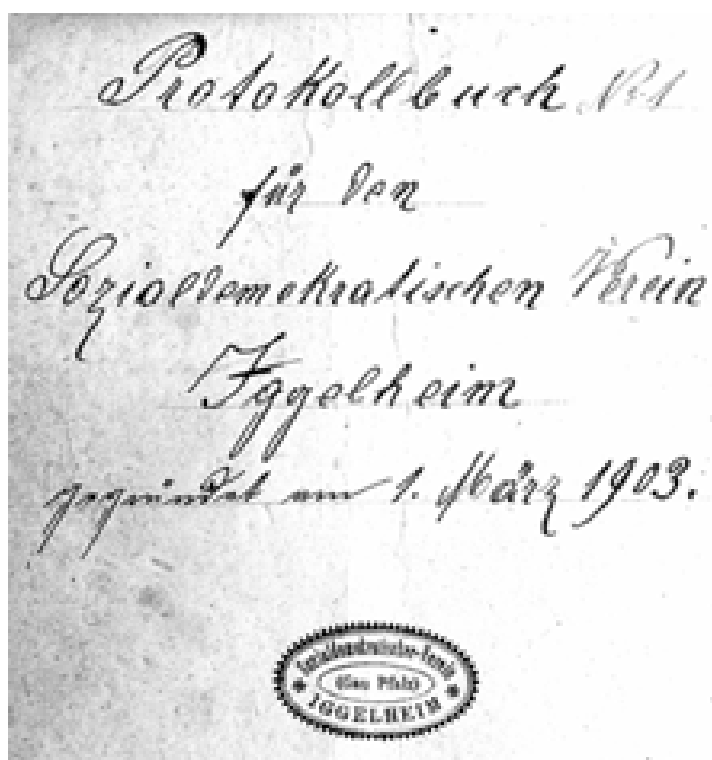 Protokollbuch No 1
für den
Sozialdemokratischen Verein
Iggelheim
gegründet am 1. März 1903.
Sozialdemokratischer-Verein
(Gau Pfalz)
IGGELHEIM